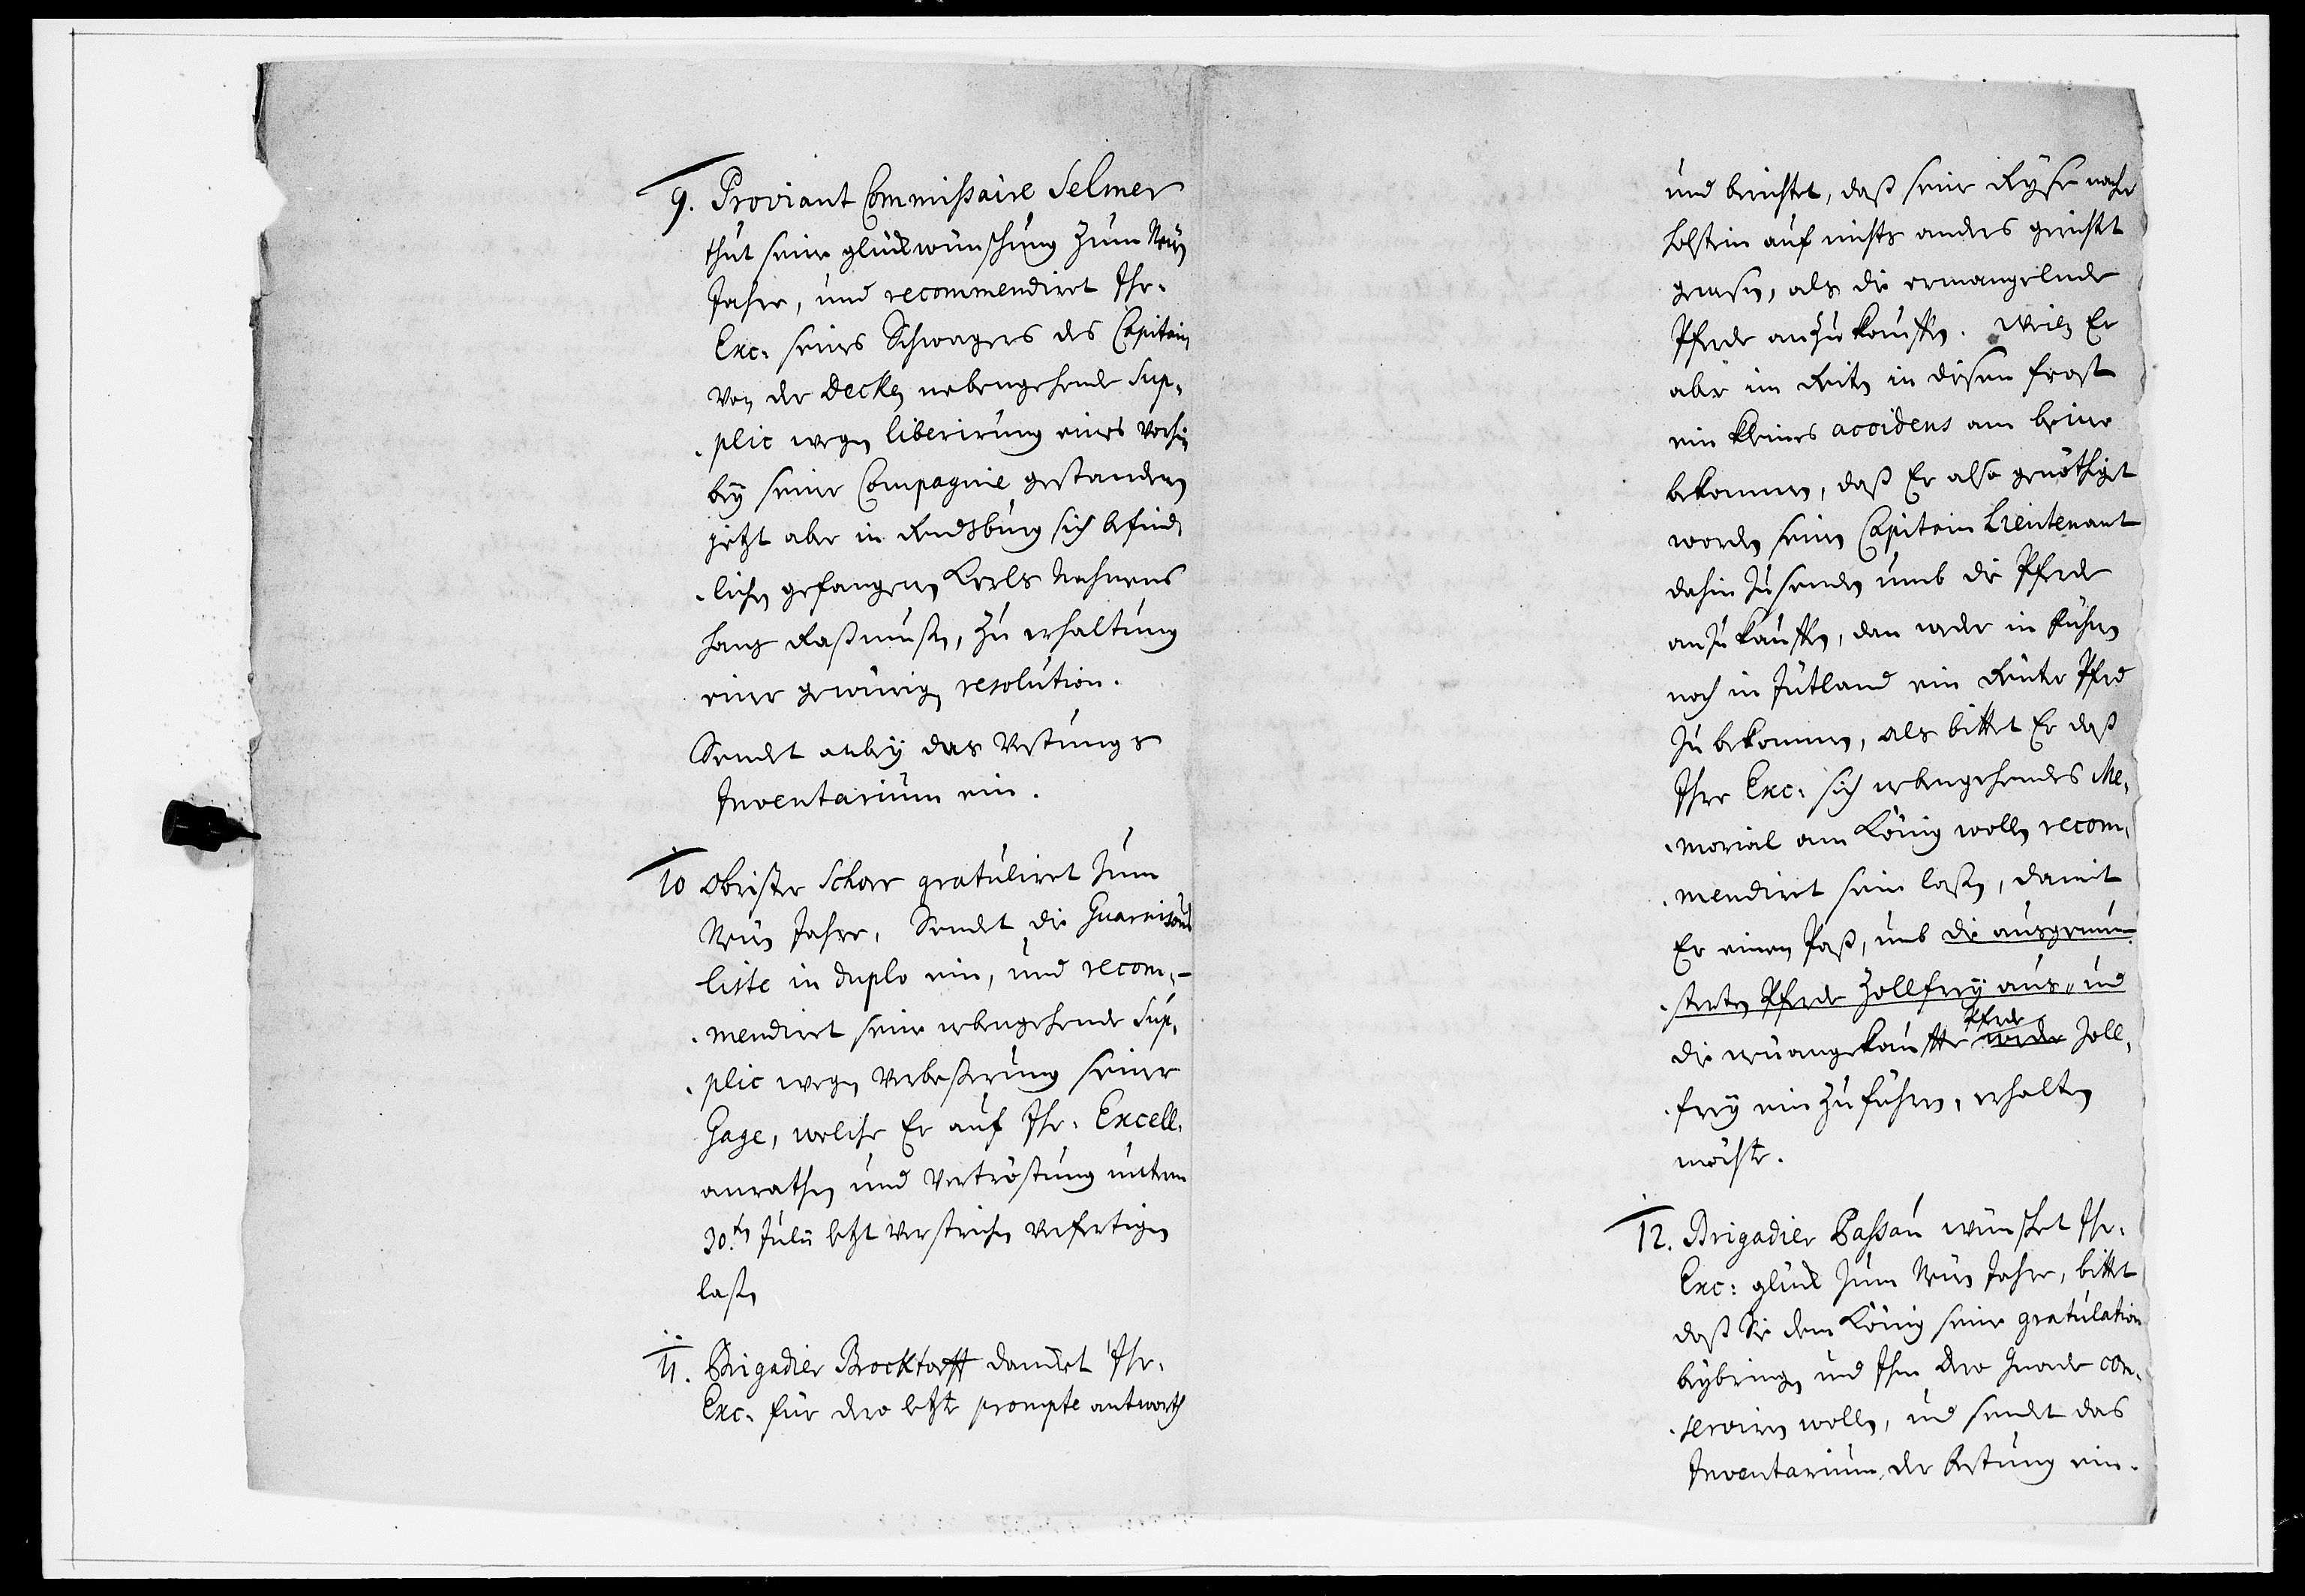 9. Proviant Commissaire Selmer
thut seine glückwünschung zum Neuen
Jahre, und recommendiret Ihr.
Exc. seines Schwagers des Capitain
von der Decken nebengehende Sup-
plic wegen liberirung eines vorhin
bey seiner Compagnie gestandenen
jetzt aber in Rendsburg sich befind-
lichen gefangenen Kerls Nahmens
Hans Raßmußen, zu erhaltung
einer gewürigen resolution.
Sendet anbey das Vestungs
Inventarium ein.
10 Obrister Schorr gratuliret zum
Neuen Jahre, Sendet die Guarnisons
liste in duplo ein, und recom-
mendiret seine nebengehende Sup-
plic wegen verbeßerung seiner
Gage, welche Er auf Ihr. Excell.
anrathen und Vertröstung unterm
30.ten Julii letzt verstrichen verfertigen
laßen
11. Brigadier Brocktorff dancket Ihr.
Exc. für dero letzte prompte antworth
und berichtet, daß seine Reyse nacher
Holstein auf nichts anders gerichtet
gewesen, als die ermangelnde
Pferde anzukauffen. Weilen Er
aber im Reiten in diesem frost
ein kleines accidens am beine
bekommen, daß Er also genöthiget
worden seinen Capitain Lieutenant
dahin zu senden umb die Pferde
anzukauffen, dan weder in Fühnen
noch in Jütland ein Reuter Pferd
zu bekommen, als bittet Er daß
Ihre Exc. sich nebengehendes Me-
morial am König wollen recom-
mendiret sein laßen, damit
Er einen Paß, umb die ausgemun-
sterten Pferde Zollfrey aus- und
die neuangekauffte Pferde wieder Zoll-
frey einzuführen, erhalten
möchte.
12. Brigadier Passau wünschet Ihr.
Exc: glück zum Neuen Jahre, bittet
daß Sie dem König seine gratulation
beybringen und Ihm dero Gnade con-
serviren wollen, und sendet das
Inventarium der Vestung ein.